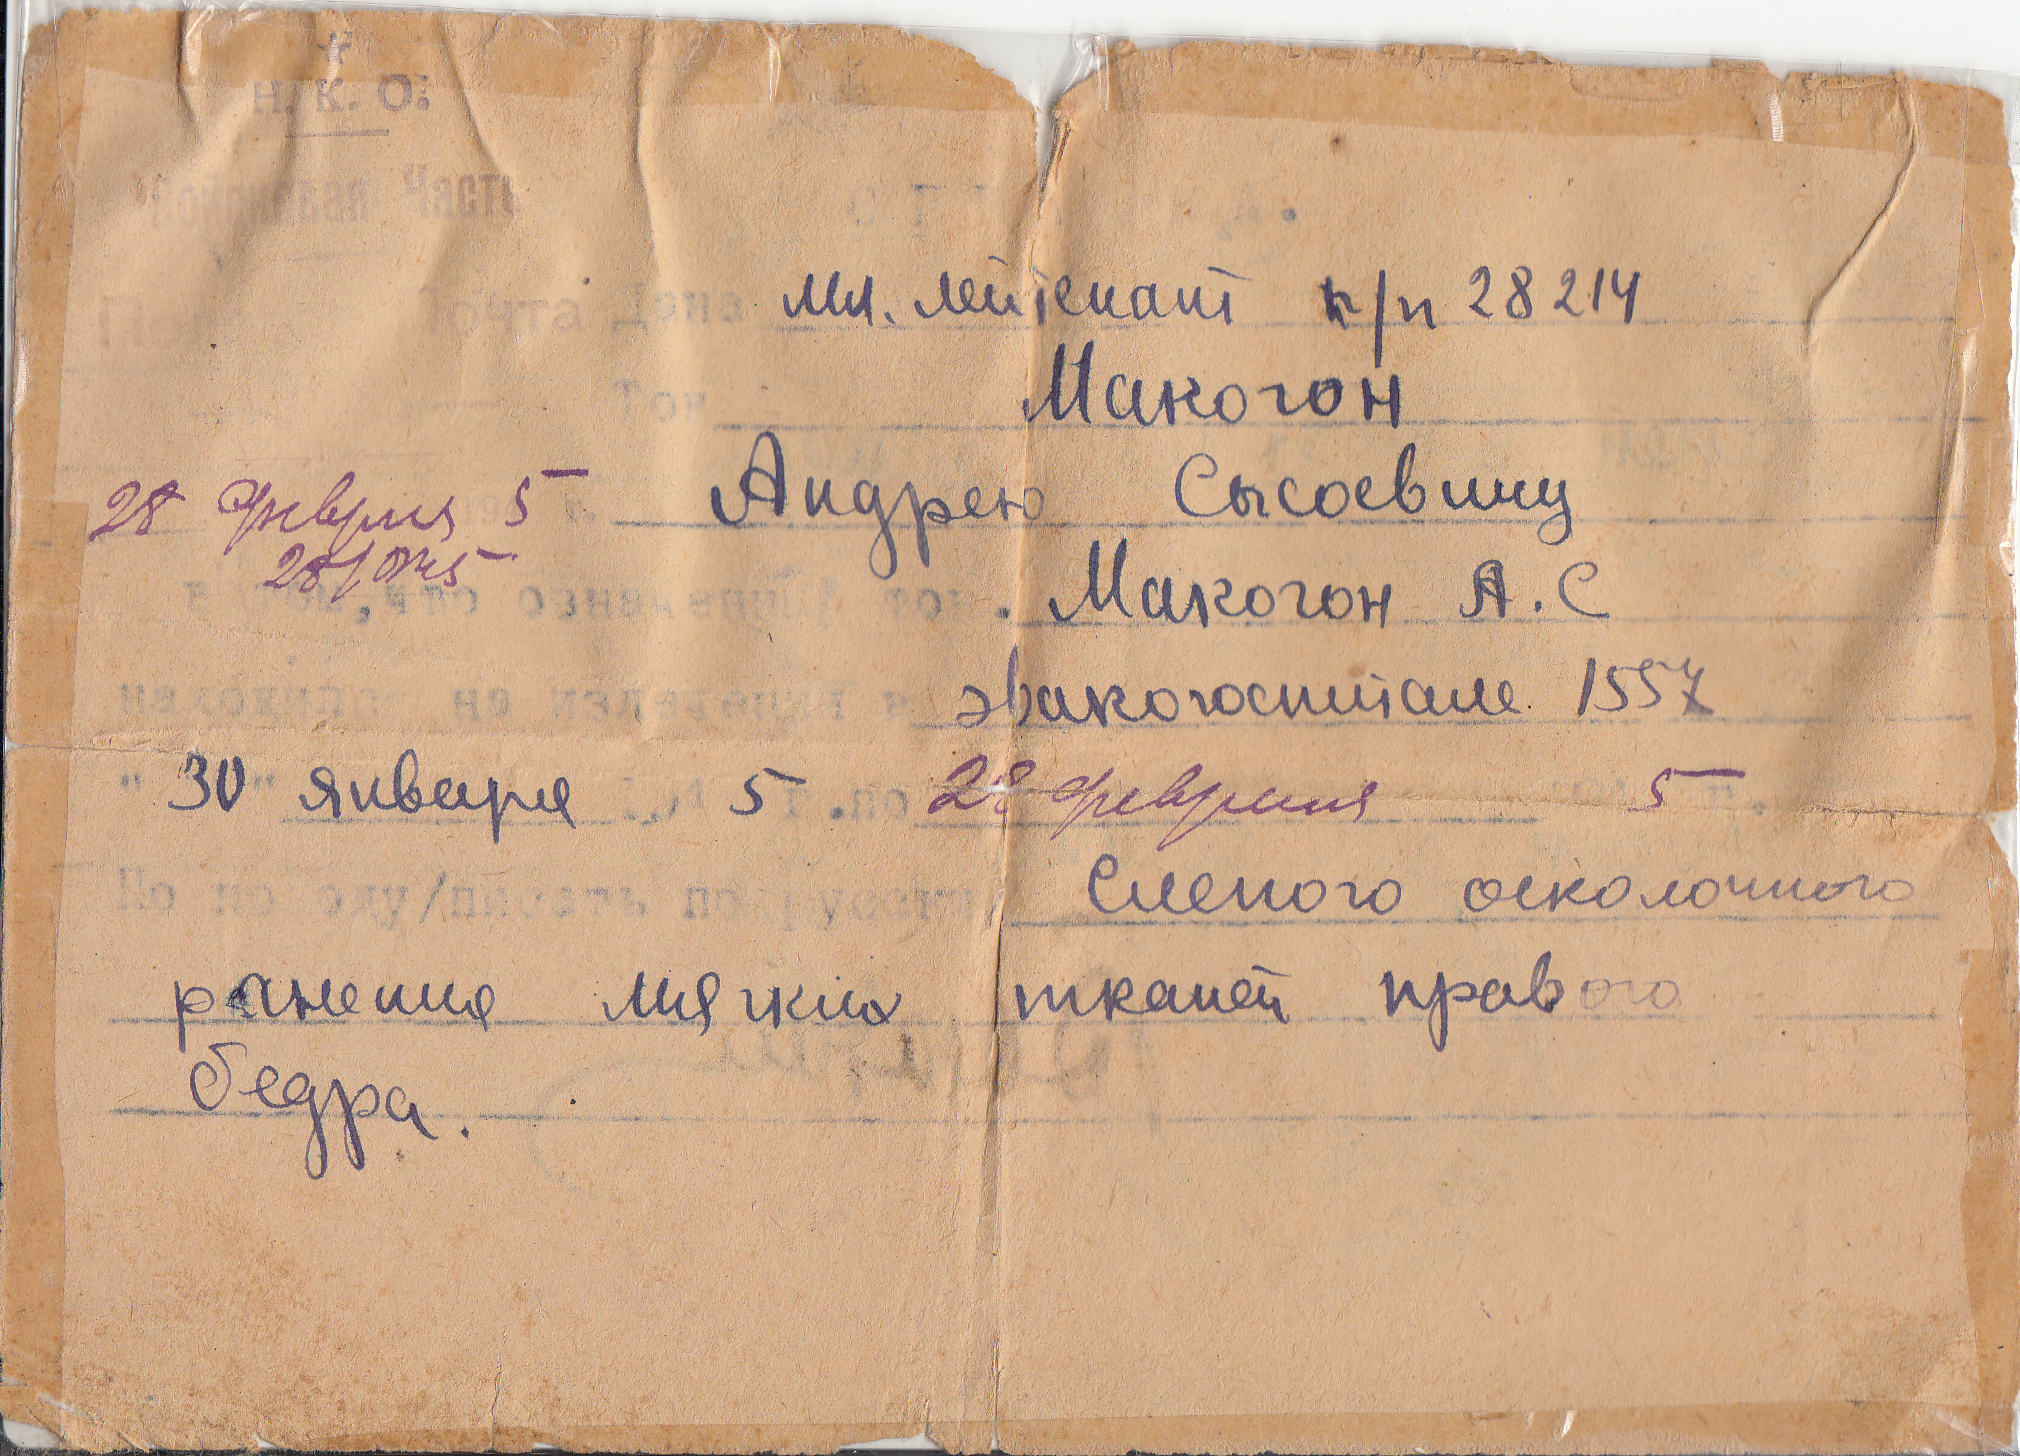 Н. К. О.
Войсковая Часть
СПРАВКА.
Почта Дана мл. лейтенант п/п 28214
Тов. Макогон
28 февраля 5 г. Андрею Сысоевичу
28/II 45
в том, что означенный тов. Макогон А. С
находился на излечении в эвакогоспитале 1557
" 30 " января 5 г. по 28 февраля 5 г.
По поводу/писать по русски Слепого осколочного
ранения мягких тканей правого
бедра.